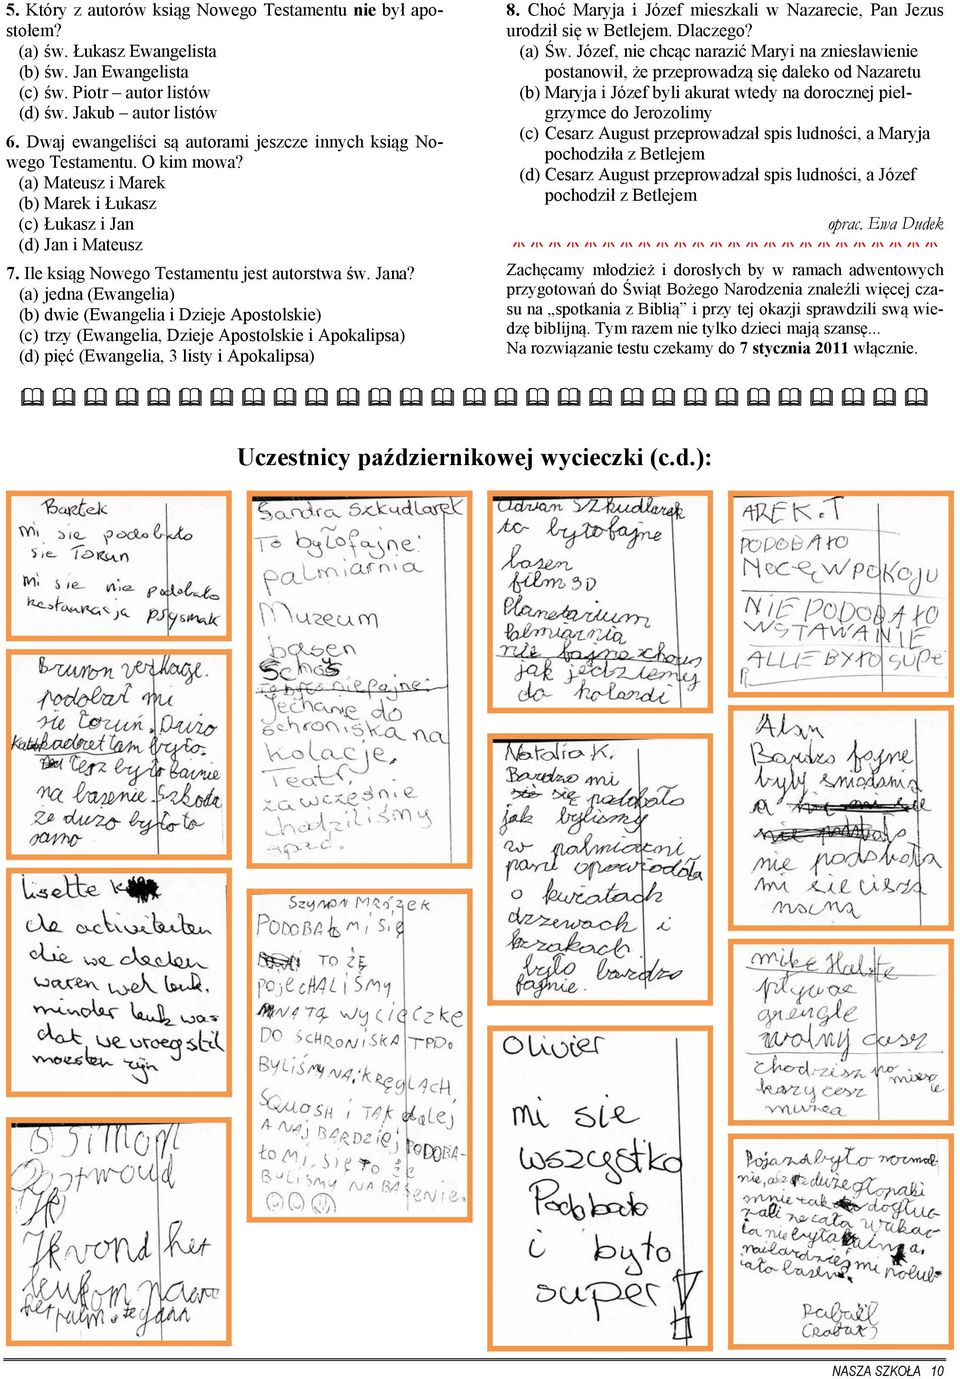 5. Który z autorów ksiąg Nowego Testamentu nie był apo-
stołem?
(a) św. Łukasz Ewangelista
(b) św. Jan Ewangelista
(c) św. Piotr autor listów
(d) św. Jakub autor listów
6. Dwaj ewangeliści są autorami jeszcze innych ksiąg No-
wego Testamentu. O kim mowa?
(a) Mateusz i Marek
(b) Marek i Łukasz
(c) Łukasz i Jan
(d) Jan i Mateusz
7. Ile ksiąg Nowego Testamentu jest autorstwa św. Jana?
(a) jedna (Ewangelia)
(b) dwie (Ewangelia i Dzieje Apostolskie)
(c) trzy (Ewangelia, Dzieje Apostolskie i Apokalipsa)
(d) pięć (Ewangelia, 3 listy i Apokalipsa)
8. Choć Maryja i Józef mieszkali w Nazarecie, Pan Jezus
urodził się w Betlejem. Dlaczego?
(a) Św. Józef, nie chcąc narazić Maryi na zniesławienie
postanowił, że przeprowadzą się daleko od Nazaretu
(b) Maryja i Józef byli akurat wtedy na dorocznej piel-
grzymce do Jerozolimy
(c) Cesarz August przeprowadzał spis ludności, a Maryja
pochodziła z Betlejem
(d) Cesarz August przeprowadzał spis ludności, a Józef
pochodził z Betlejem
oprac. Ewa Dudek
Zachęcamy młodzież i dorosłych by w ramach adwentowych
przygotowań do Świąt Bożego Narodzenia znaleźli więcej cza-
su na „spotkania z Biblią” i przy tej okazji sprawdzili swą wie-
dzę biblijną. Tym razem nie tylko dzieci mają szansę...
Na rozwiązanie testu czekamy do 7 stycznia 2011 włącznie.
Uczestnicy październikowej wycieczki (c.d.):
Bartek
Mi sie podobało
sie TORUN
mi sie nie podobało
restauracja
Brunon verhage.
podobał mi
sie toruń. Dużo
tam było.
Tesz było fainie
na basenie. Szkoda
że dużo było to
samo
Lisette
de activiteiten
die we deden
waren wel leuk.
minder leuk was
dat, we vroeg stil
moesten zijn
SIMON
Oostwoud
Ik vond het
leukom naar
Sandra Szkudlarek
To było fajne:
palmiarnia
Muzeum
basen
jechanie do
schroniska na
kolacje.
Teatr
za wcześnie
chodziliśmy
spac.
SZYMON MRÓZEK
PODOBAŁO MI SIĘ
TO ŻE
POJECHALIŚMY
NA TĄ WYCIECZKE
DO SCHRONISKA TPD.
BYLIŚMY NA KRĘGLACH,
SQUOSH I TAK dalej
A NAJ BARDZIEJ PODOBA-
ŁO MI SIĘ TO ŻE
BYLIŚMY NA BASENIE.
Adrian SZKUDLAREK
to było fajne
basen
film 3D
Planetarium
Palmiarnia
nie fajne
jak jedziemy
do holandi
Natalia K.
Bardzo mi
się podobało
jak byliśmy
w palmiarni
pani opowiodała
o kwiatach
drzewach i
krzakach
było bardzo
fajnie.
Olivier
mi sie
wszystko
Podobało
i było
super!
AREK.T
PODOBAŁO
NOCĘ W POKOJU
NIE PODOBAŁO
WSTAWANIE
ALLE BYŁO SUPE
R
Alan
Bardzo fajne
były śniadania
a
nie podobała
mi sie cisza
nocna
mike
pływac
wolny czas
chodzisz po
muzea
Pojazd było normal-
nie,